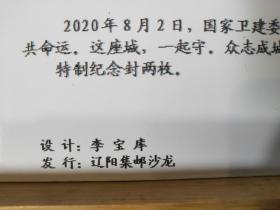 2020年8月2日，国家卫建委
共命运。这座城，一起守。众志成城
特制纪念封两枚。
设计：李宝库
发行：辽阳集邮沙龙